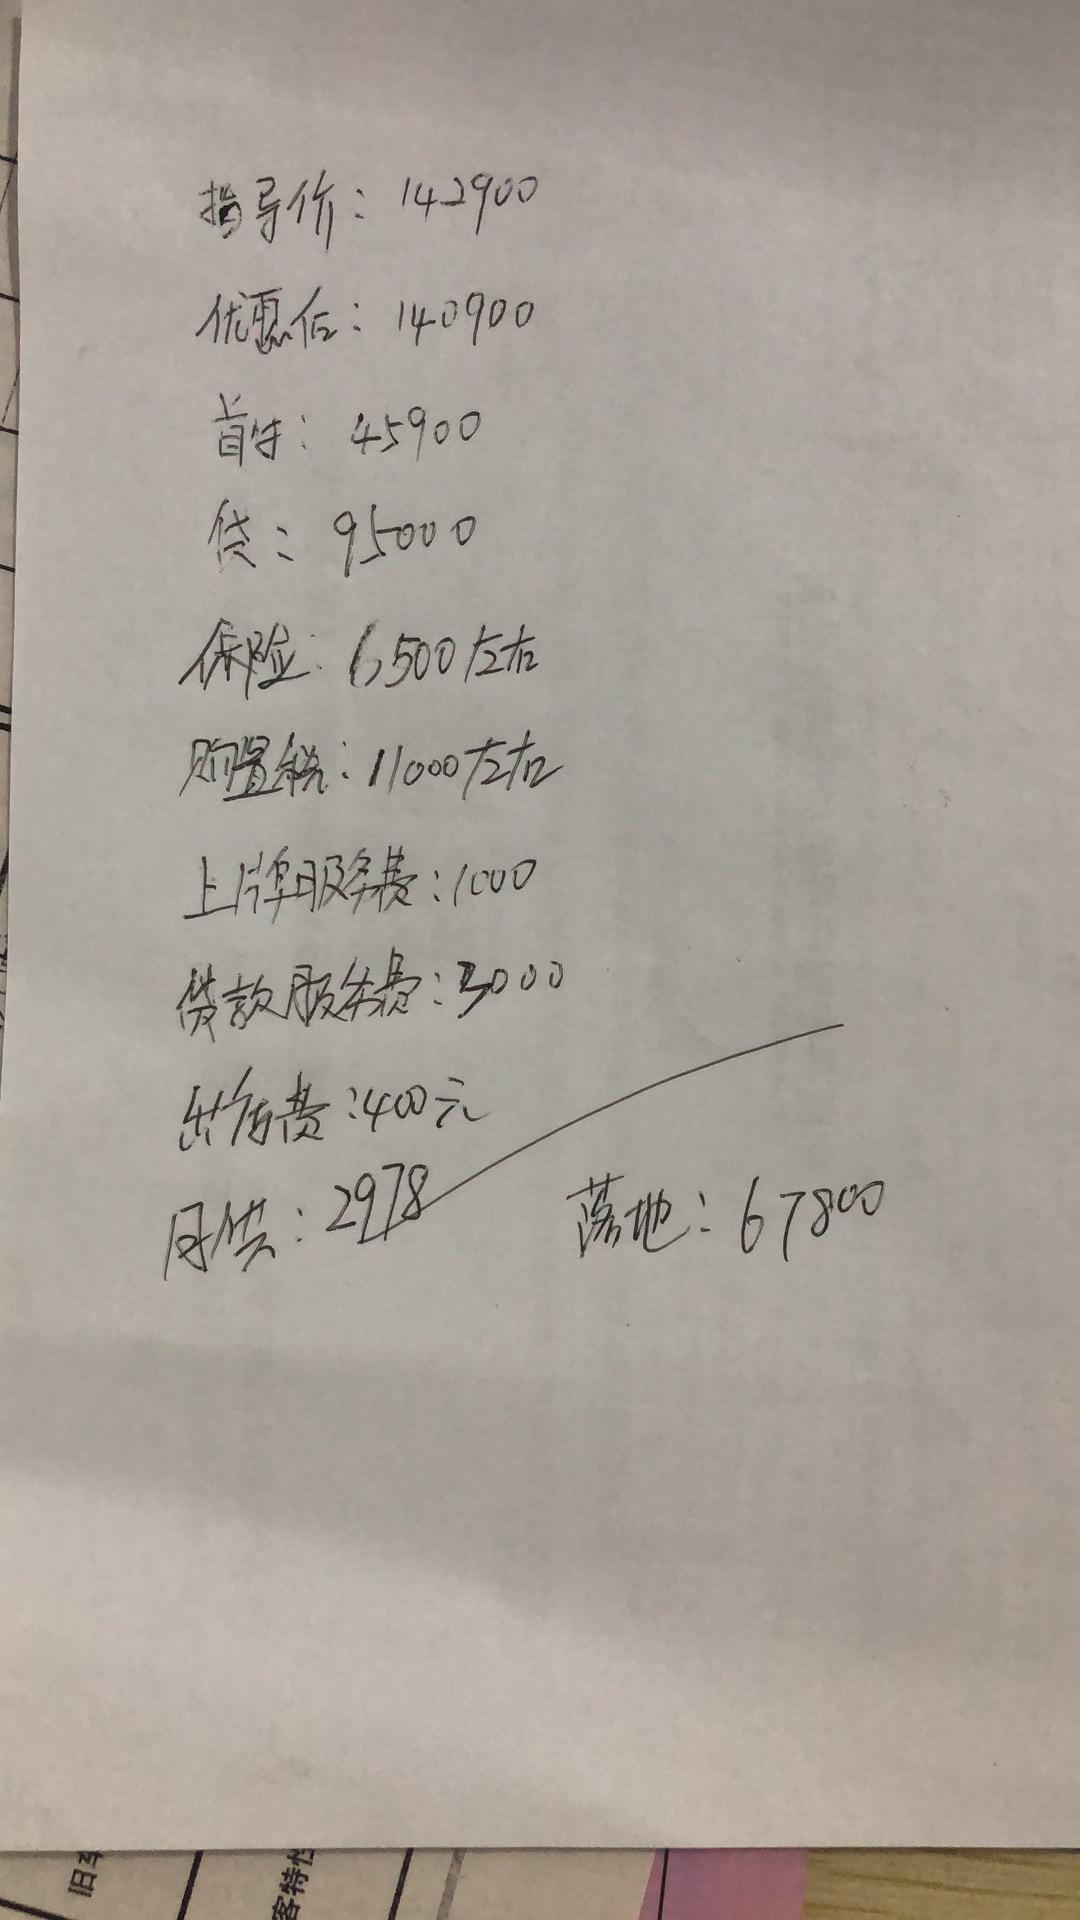 指导价：142900
优惠后：140900
首付：45900
贷：95000
保险：6500左右
购置税：11000左右
上牌服务费：1000
贷款服务费：3000
出店费：400元
月供：2978 落地：67800
旧车
客特性